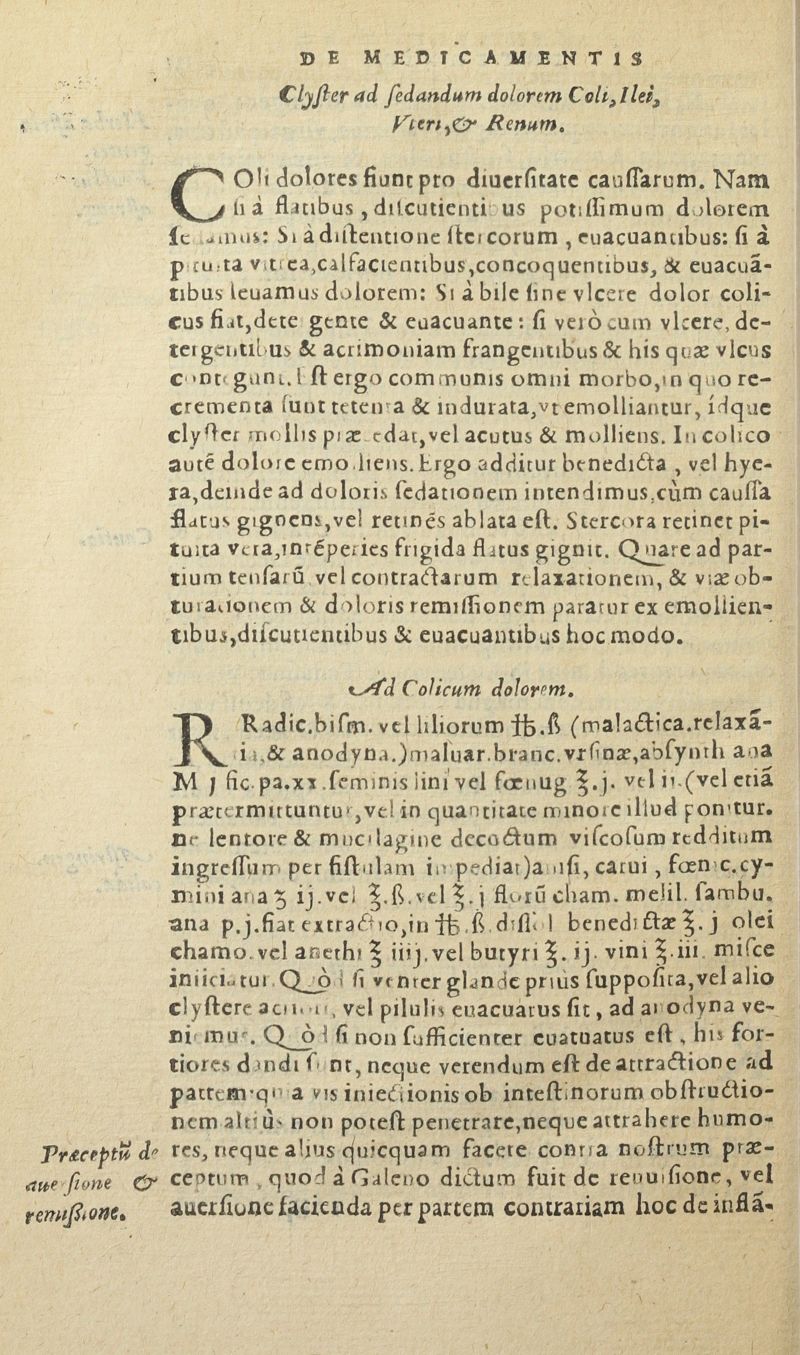 DE MEDICAMENTIS
Clyſter ad ſedandum dolorem Coli, Ilei,
Vteri, & Renum.
COli dolores fiunt pro diuerſitate cauſſarum. Nam
ſi à flatibus, diſcutientibus potiſſimum dolorem
Si à diſtentione ſtercorum, euacuantibus: ſi à
pituita vitrea, calfacientibus, concoquentibus, & euacuã-
tibus leuamus dolorem: Si à bile ſine vlcere dolor coli-
cus fiat, detergente & euacuante: ſi verò cum vlcere, de-
tergentibus & acrimoniam frangentibus & his quæ vlcus
contegunt. Eſt ergo communis omni morbo, in quo re-
crementa ſunt retenta & indurata, vt emolliantur, ídque
clyſter mollis præcedat, vel acutus & molliens. In colico
autẽ dolore emolliens. Ergo additur benedicta, vel hye-
ra, deinde ad doloris ſedationem intendimus, cùm cauſſa
flatus gignens, vel retinẽs ablata eſt. Stercora retinet pi-
tuita vitrea, intẽperies frigida flatus gignit. Quare ad par-
tium tenſarũ vel contractarum relaxationem, & viæ ob-
turationem & doloris remiſſionem paratur ex emollien-
tibus, diſcutientibus & euacuantibus hoc modo.
Ad Colicum dolorem.
R Radic. biſm. vel liliorum ℔.ß (malactica. relaxã-
& anodyna.) maluar. branc. vrſinæ, abſynth ana
M j fic. pa. xx. ſeminis lini vel fœnug ℥.j. vel ij. (vel etiã
prætermittuntur, vel in quantitate minore illud ponitur.
ne lentore & mucilagine decoctum viſcoſum redditum
ingreſſum per fiſtulam impediat) aniſi, carui, fœnic. cy-
mini ana ʒ ij. vel ℥.ß. vel ℥.j florũ cham. melil. ſambu.
ana p.j. fiat extractio, in ℔.ß. diſſol benedictæ ℥.j olei
chamo. vel anethi ℥ iiij. vel butyri ℥.ij. vini ℥.iii. miſce
iniiciatur. Quòd ſi venter glande priùs ſuppoſita, vel alio
clyſtere acriori, vel pilulis euacuatus ſit, ad anodyna ve-
nimus. Quòd ſi non ſufficienter euatuatus eſt, his for-
tiores dandi ſunt, neque verendum eſt de attractione ad
partem: quia vis iniectionis ob inteſtinorum obſtructio-
nem altiùs non poteſt penetrare, neque attrahere humo-
res, neque alius quicquam facere contra noſtrum præ-
ceptum, quod à Galeno dictum fuit de reuulſione, vel
auerſione facienda per partem contrariam hoc de inflã-
Præceptũ de
auerſione &
renulſione.